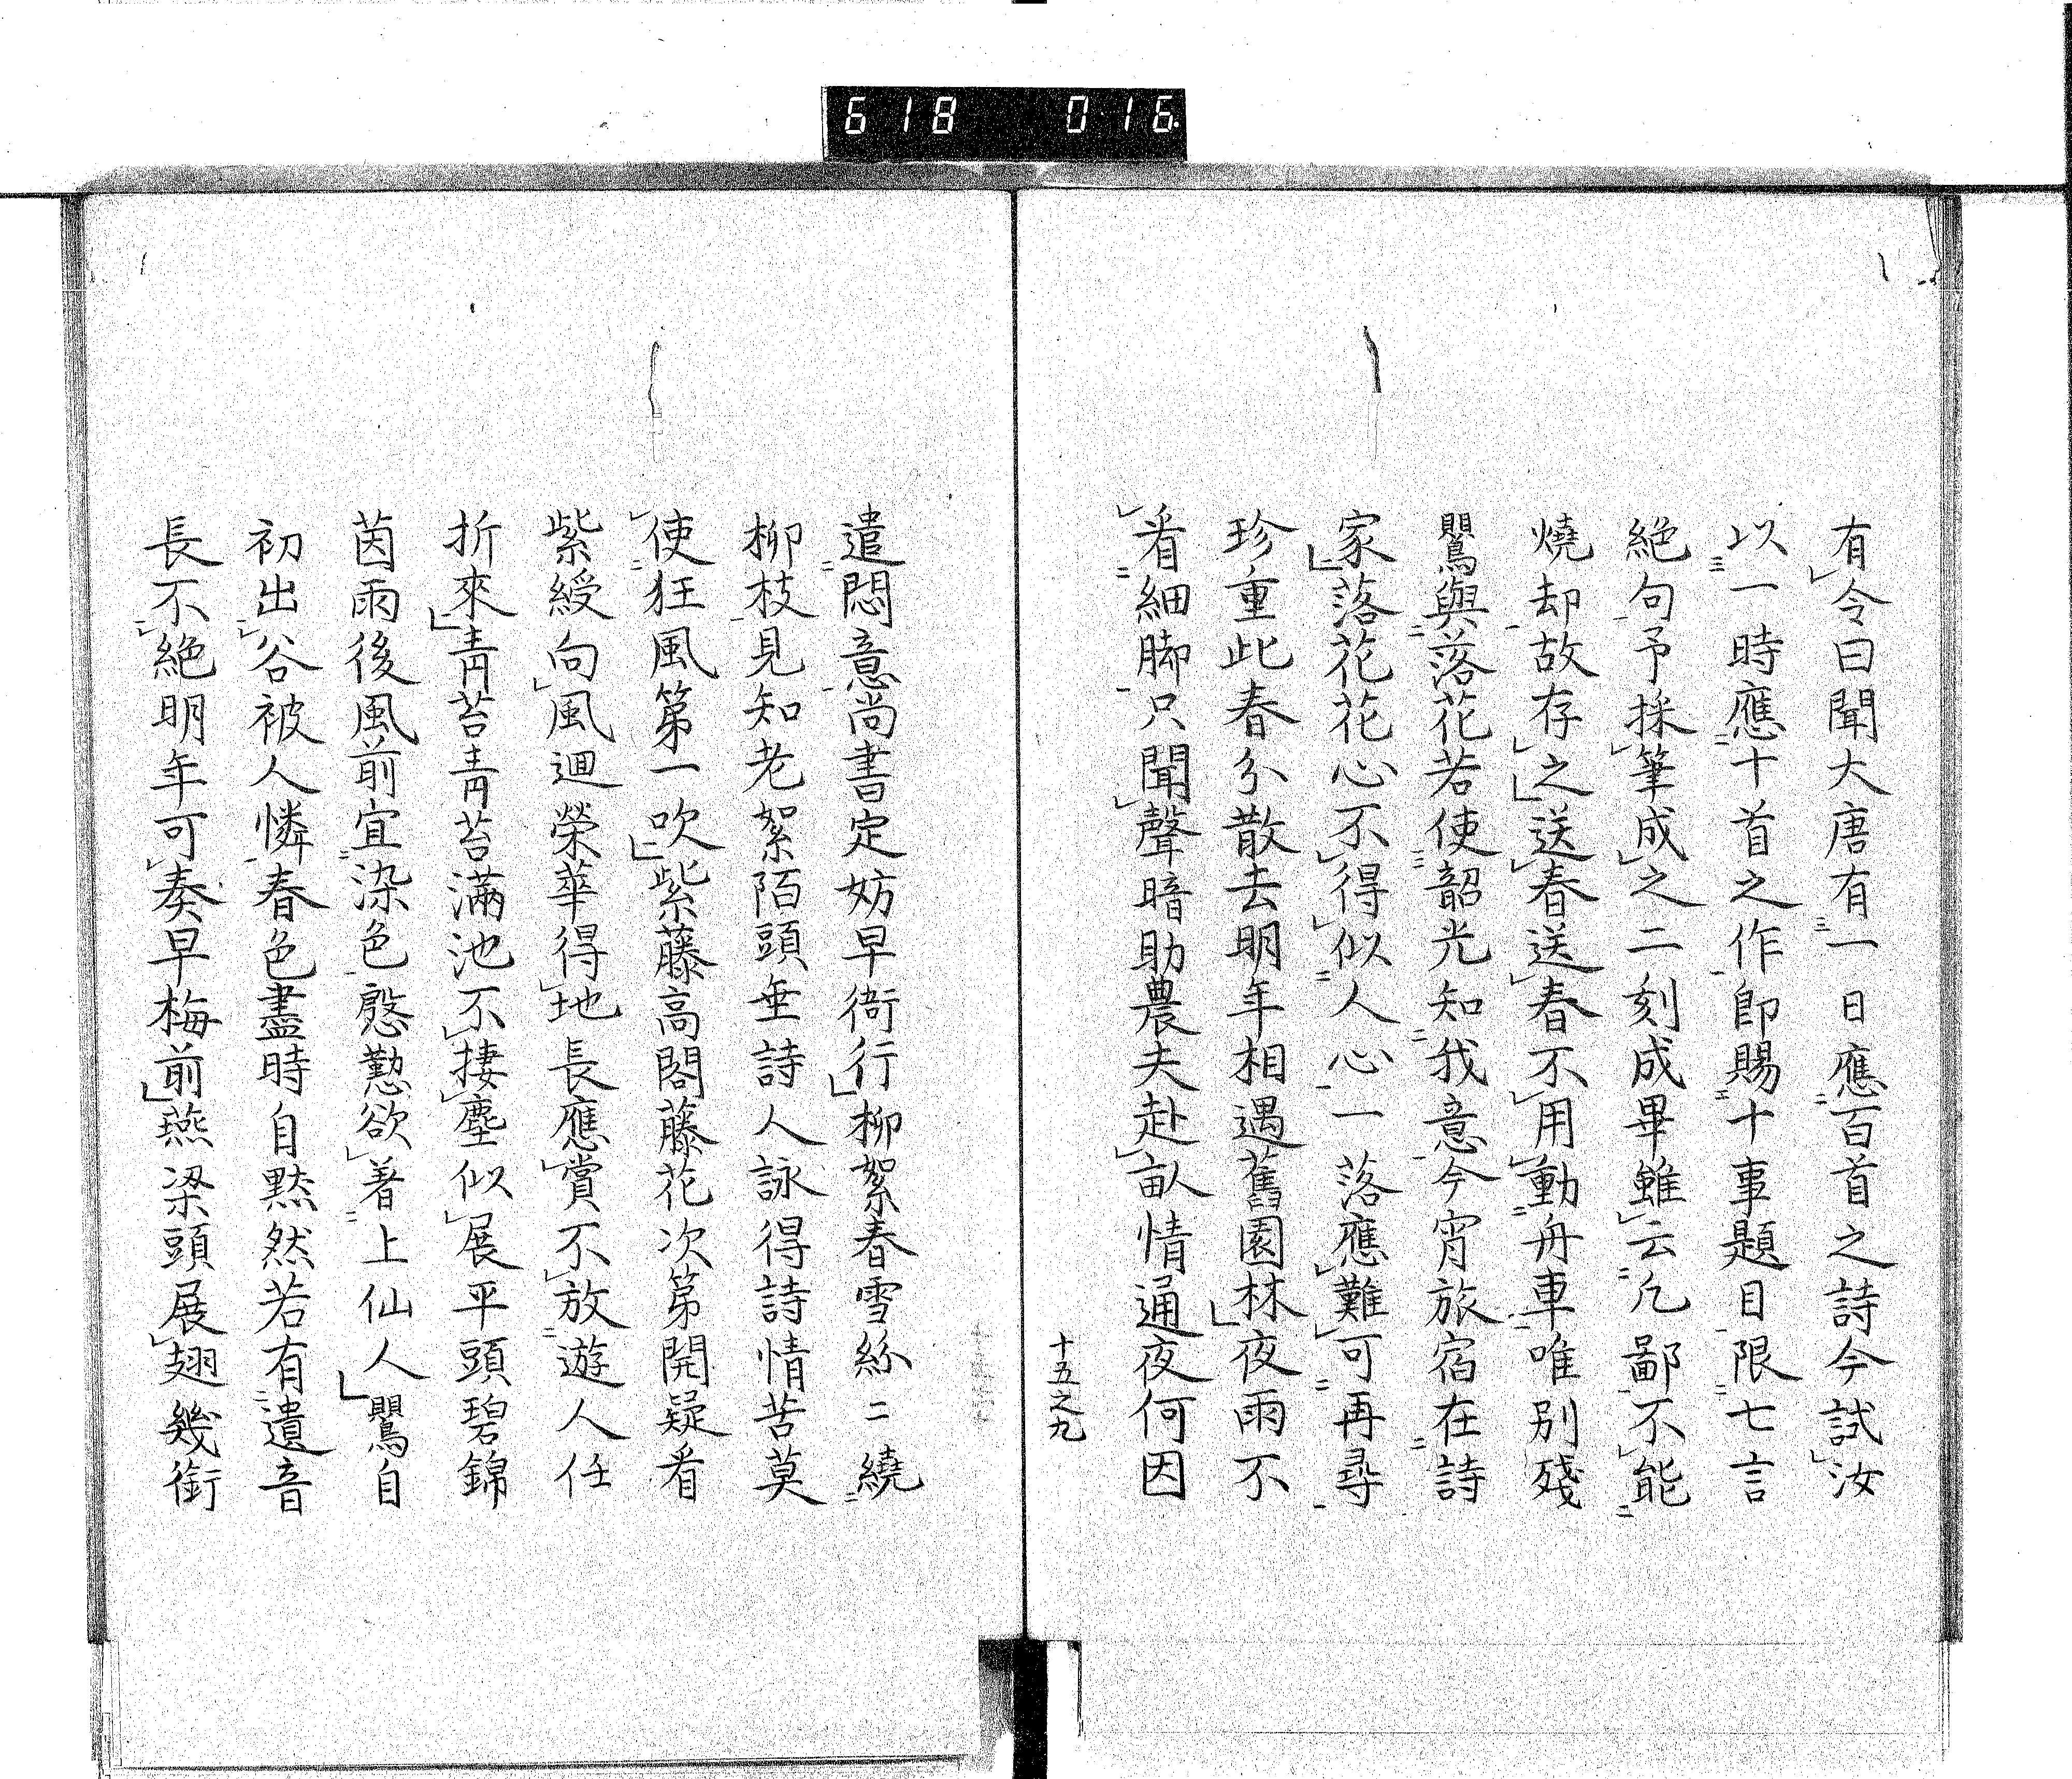 618 016
有令曰聞大唐有一日應百首之詩今試汝
以一時應十首之作即賜十事題目限七言
絶句予採筆成之二刻成畢雖云凡鄙不能
燒却故存之送春送春不用動舟車唯別殘
鸎與落花若使韶光知我意今宵旅宿在詩
家落花花心不得似人心一落應難可再尋
珍重此春分散去明年相遇舊園林夜雨不
看細脚只聞聲暗助農夫赴畝情通夜何因
十五之九
遣悶意尚書定妨早衙行柳絮春雪絲〻繞
柳枝見知老絮陌頭垂詩人詠得詩情苦莫
使狂風第一吹紫藤高閣藤花次第開疑看
紫綬向風迴榮華得地長應賞不放遊人任
折來青苔青苔滿池不捿塵似展平頭碧錦
茵雨後風前宜染色慇懃欲著上仙人鸎自
初出谷被人憐春色盡時自黙然若有遺音
長不絶明年可奏早梅前燕梁頭展翅幾銜